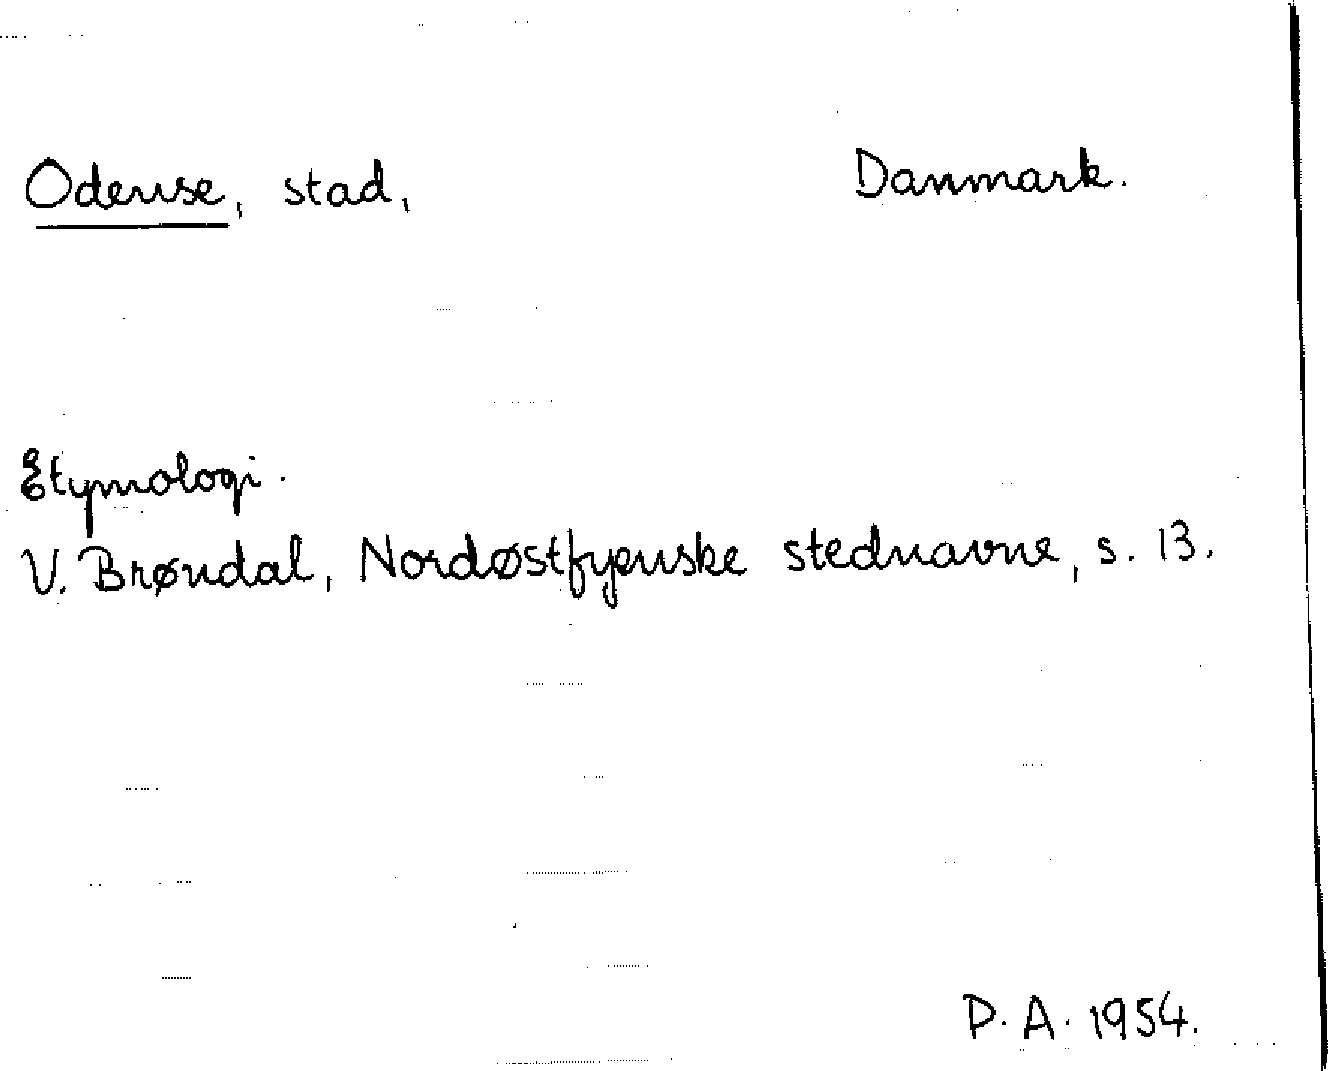 Odense, stad, Danmark.
Etymologi.
V. Brøndal, Nordøstfyenske stednavne, s. 13.
D. A. 1954.